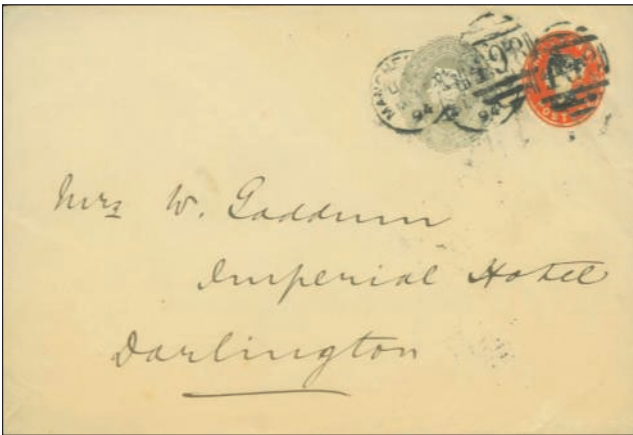 MANCHE
94 94
Mrs W. Gaddum
Imperial Hotel
Darlington